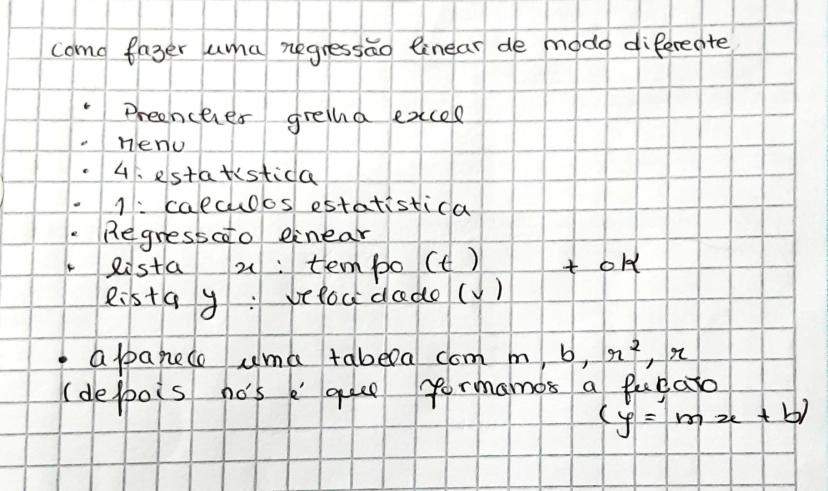 como fazer uma regressão linear de modo diferente
• Preencher grelha excel
• Menu
• 4: estatística
• 1: calculos estatística
• Regressão linear
• lista x : tempo (t) + ok
lista y : velocidade (v)
• aparece uma tabela com m, b, r², r
(depois nós é que formamos a fução
(y = mx + b)